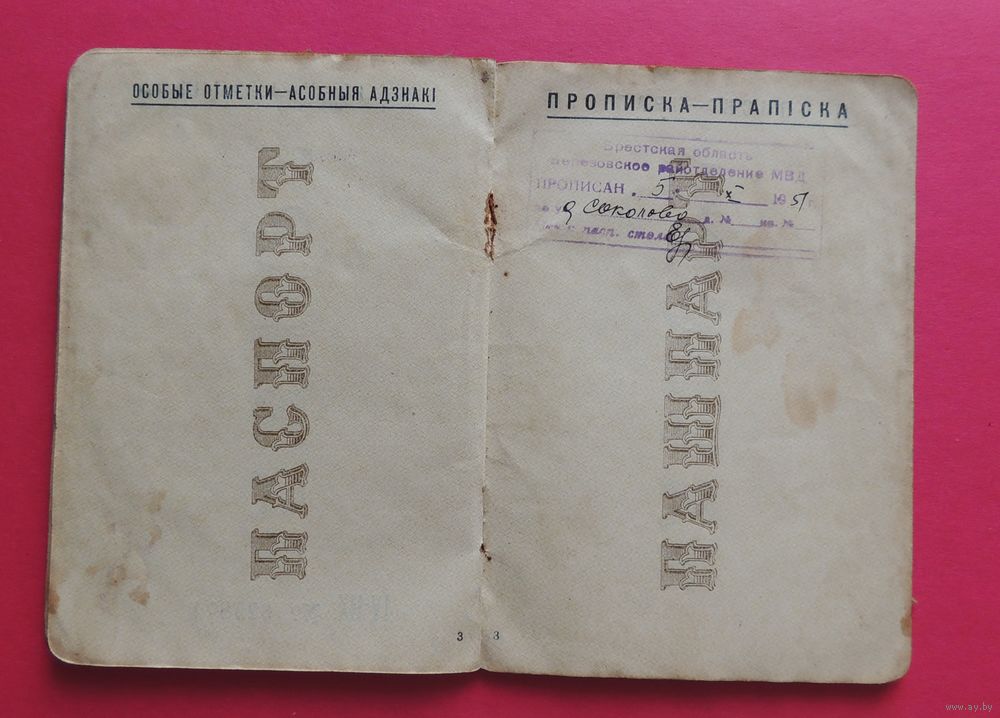 ОСОБЫЕ ОТМЕТКИ—АСОБНЫЯ АДЗНАКІ
ПАСПОРТ
3
ПРОПИСКА—ПРАПІСКА
Брестская область
Березовское райотделение МВД
ПРОПИСАН 5 X 1951 г.
д Соколово д. № кв. №
пасп. стола
ПАШПАРТ
3
www.ay.by